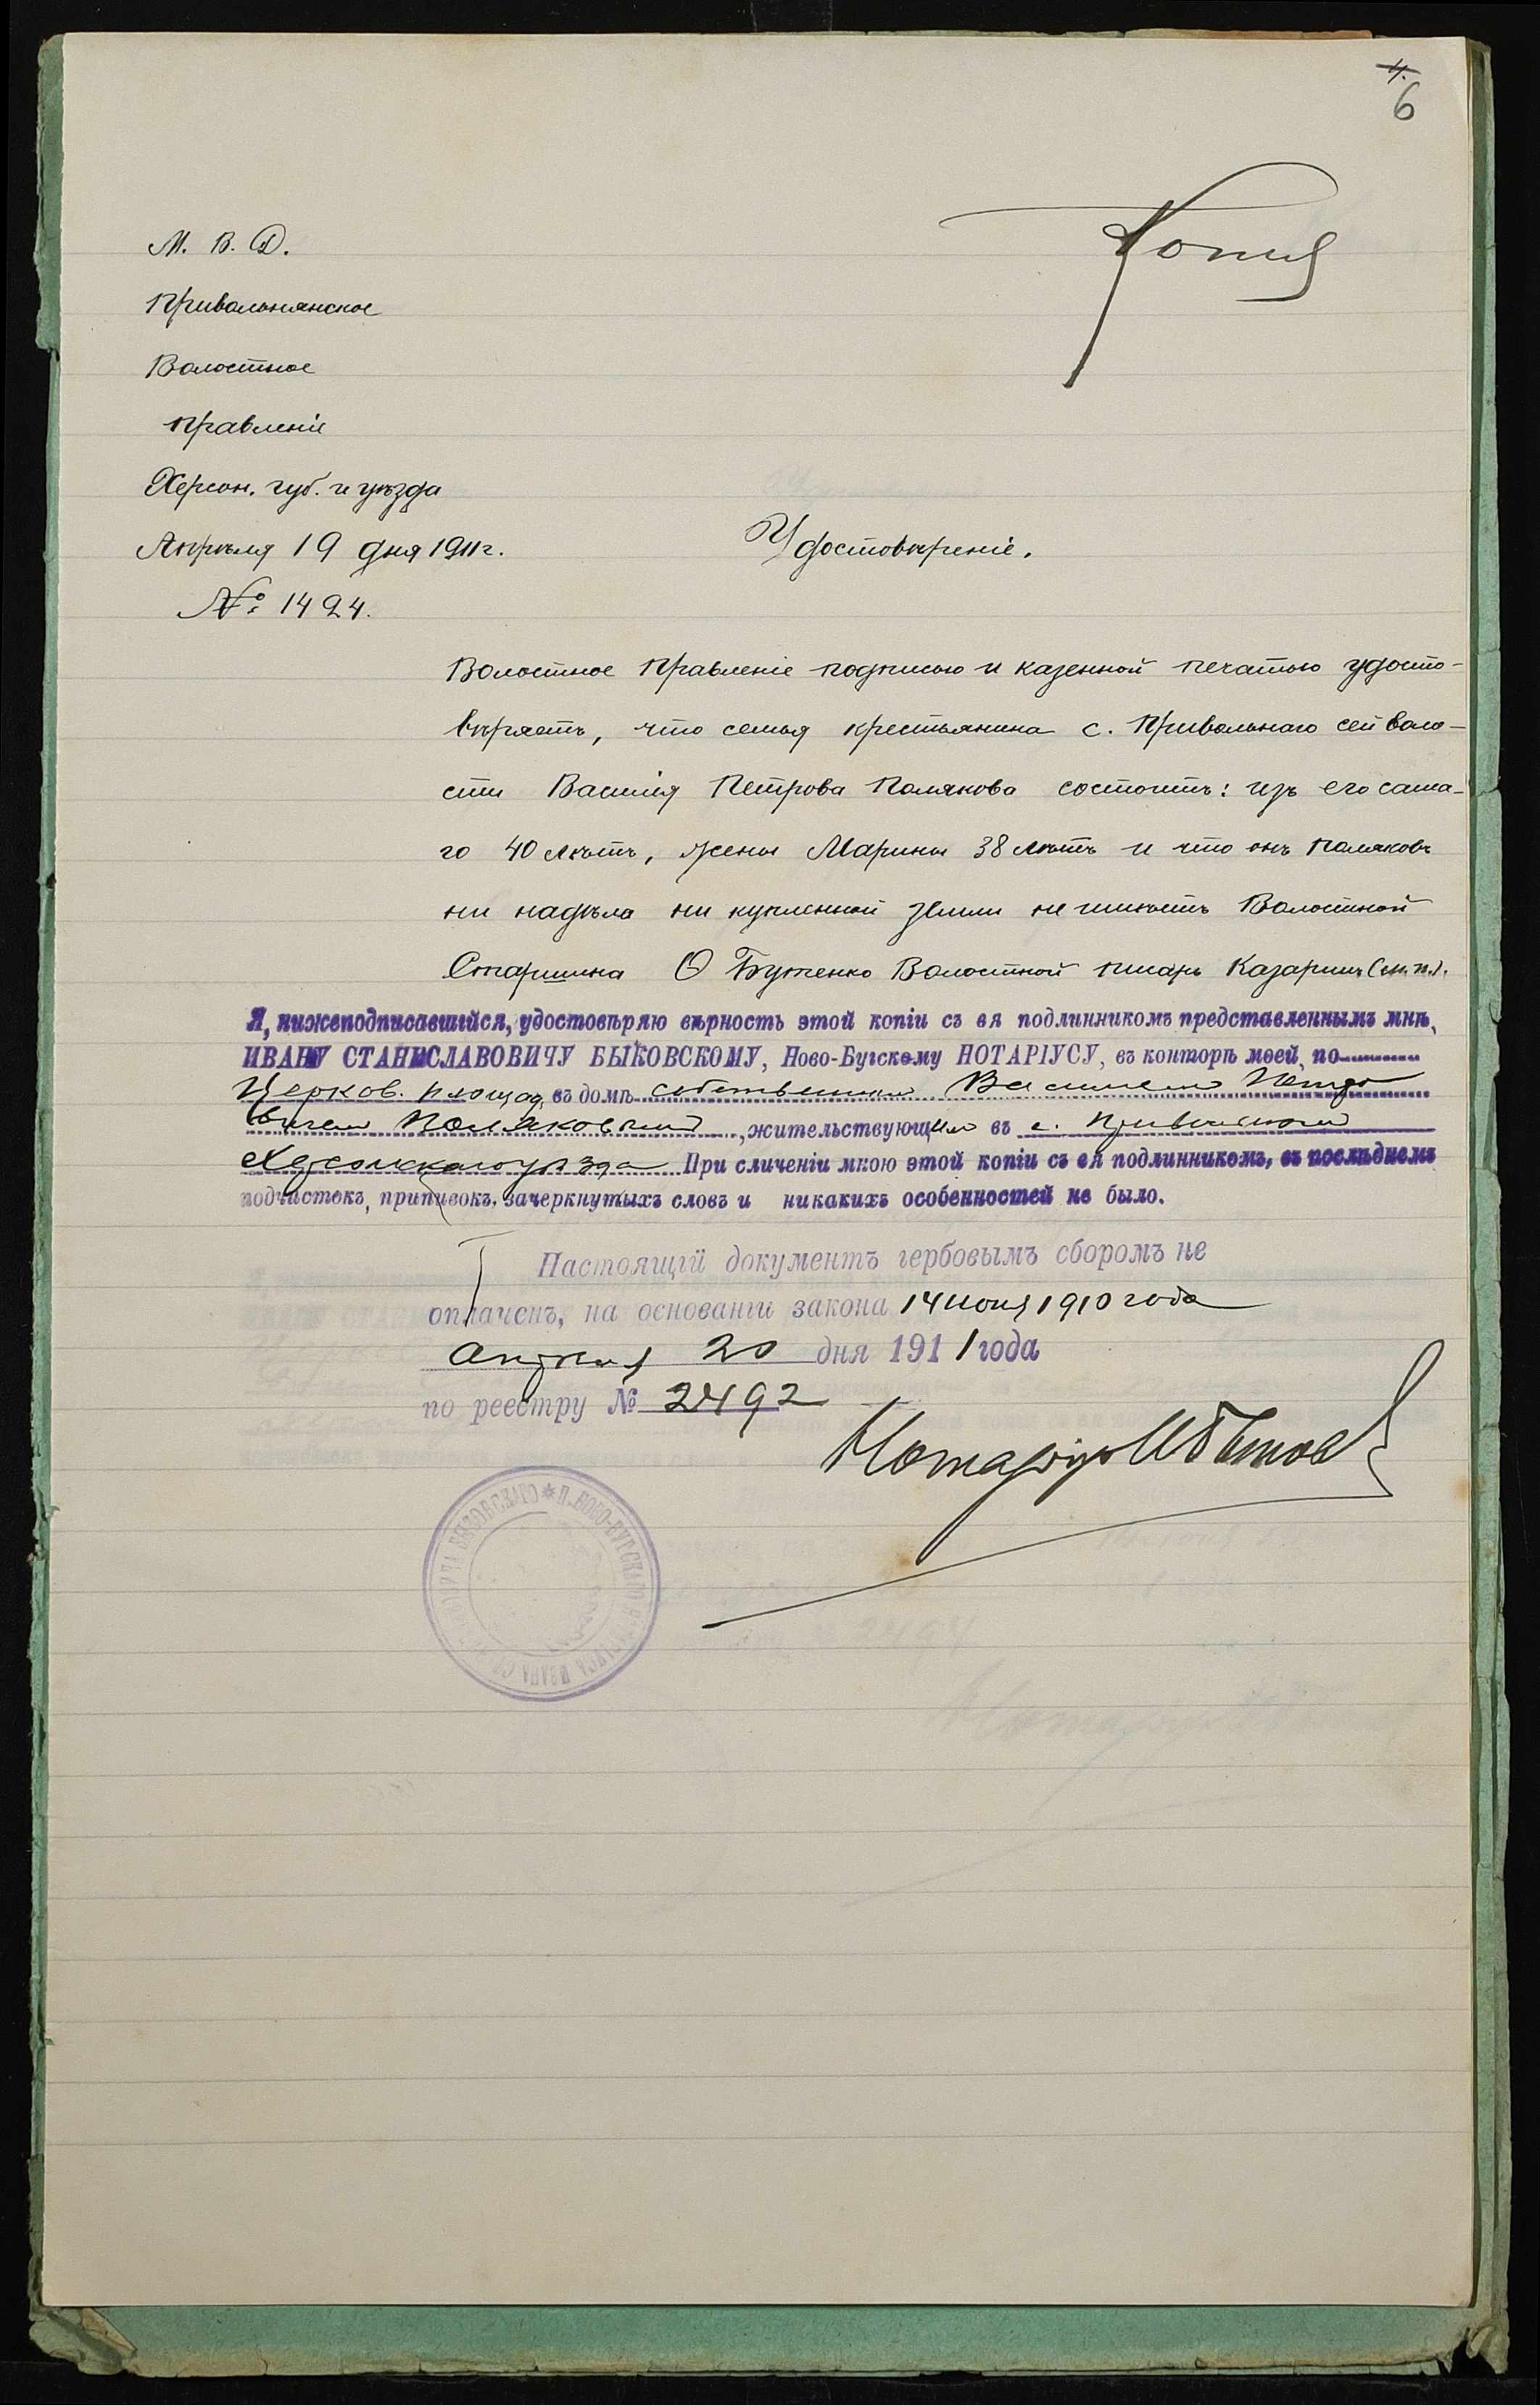 4.
6
Копия
М. В. Д.
Привольнянское
Волостное
Правленіе
Херсон. губ. и уѣзда
Апрѣля 19 дня 1911 г.
№ 1424.
Удостовѣреніе.
Волостное Правленіе подписью и казенной печатью удосто-
вѣряетъ, что семья крестьянина с. Привольнаго сей воло-
сти Василія Петрова Полякова состоитъ: изъ его сама-
го 40 лѣтъ, жены Марины 38 лѣтъ и что онъ Поляковъ
ни надѣла ни купленной земли не имѣетъ Волостной
Старшина О Бутенко Волостной писарь Казаринъ (м.п.).
Я, нижеподписавшійся, удостовѣряю вѣрность этой копіи съ ея подлинникомъ представленнымъ мнѣ,
ИВАНУ СТАНИСЛАВОВИЧУ БЫКОВСКОМУ, Ново-Бугскому НОТАРІУСУ, въ конторѣ моей, по
Церков. площад. въ домѣ собственном Василием Петро
вичем Поляковым, жительствующим въ с. Привольном
Херсонскаго уѣзда При сличеніи мною этой копіи съ ея подлинникомъ, въ послѣднемъ
подчистокъ, приписокъ, зачеркнутыхъ словъ и никакихъ особенностей не было.
Настоящій документъ гербовымъ сборомъ не
оплаченъ, на основаніи закона 14 июня 1910 года
Апрѣля 20 дня 1911 года
по реестру № 2492
Нотаріус
П. НОВО-БУГСКАГО НОТАРІУСА ИВАНА БЫКОВСКАГО